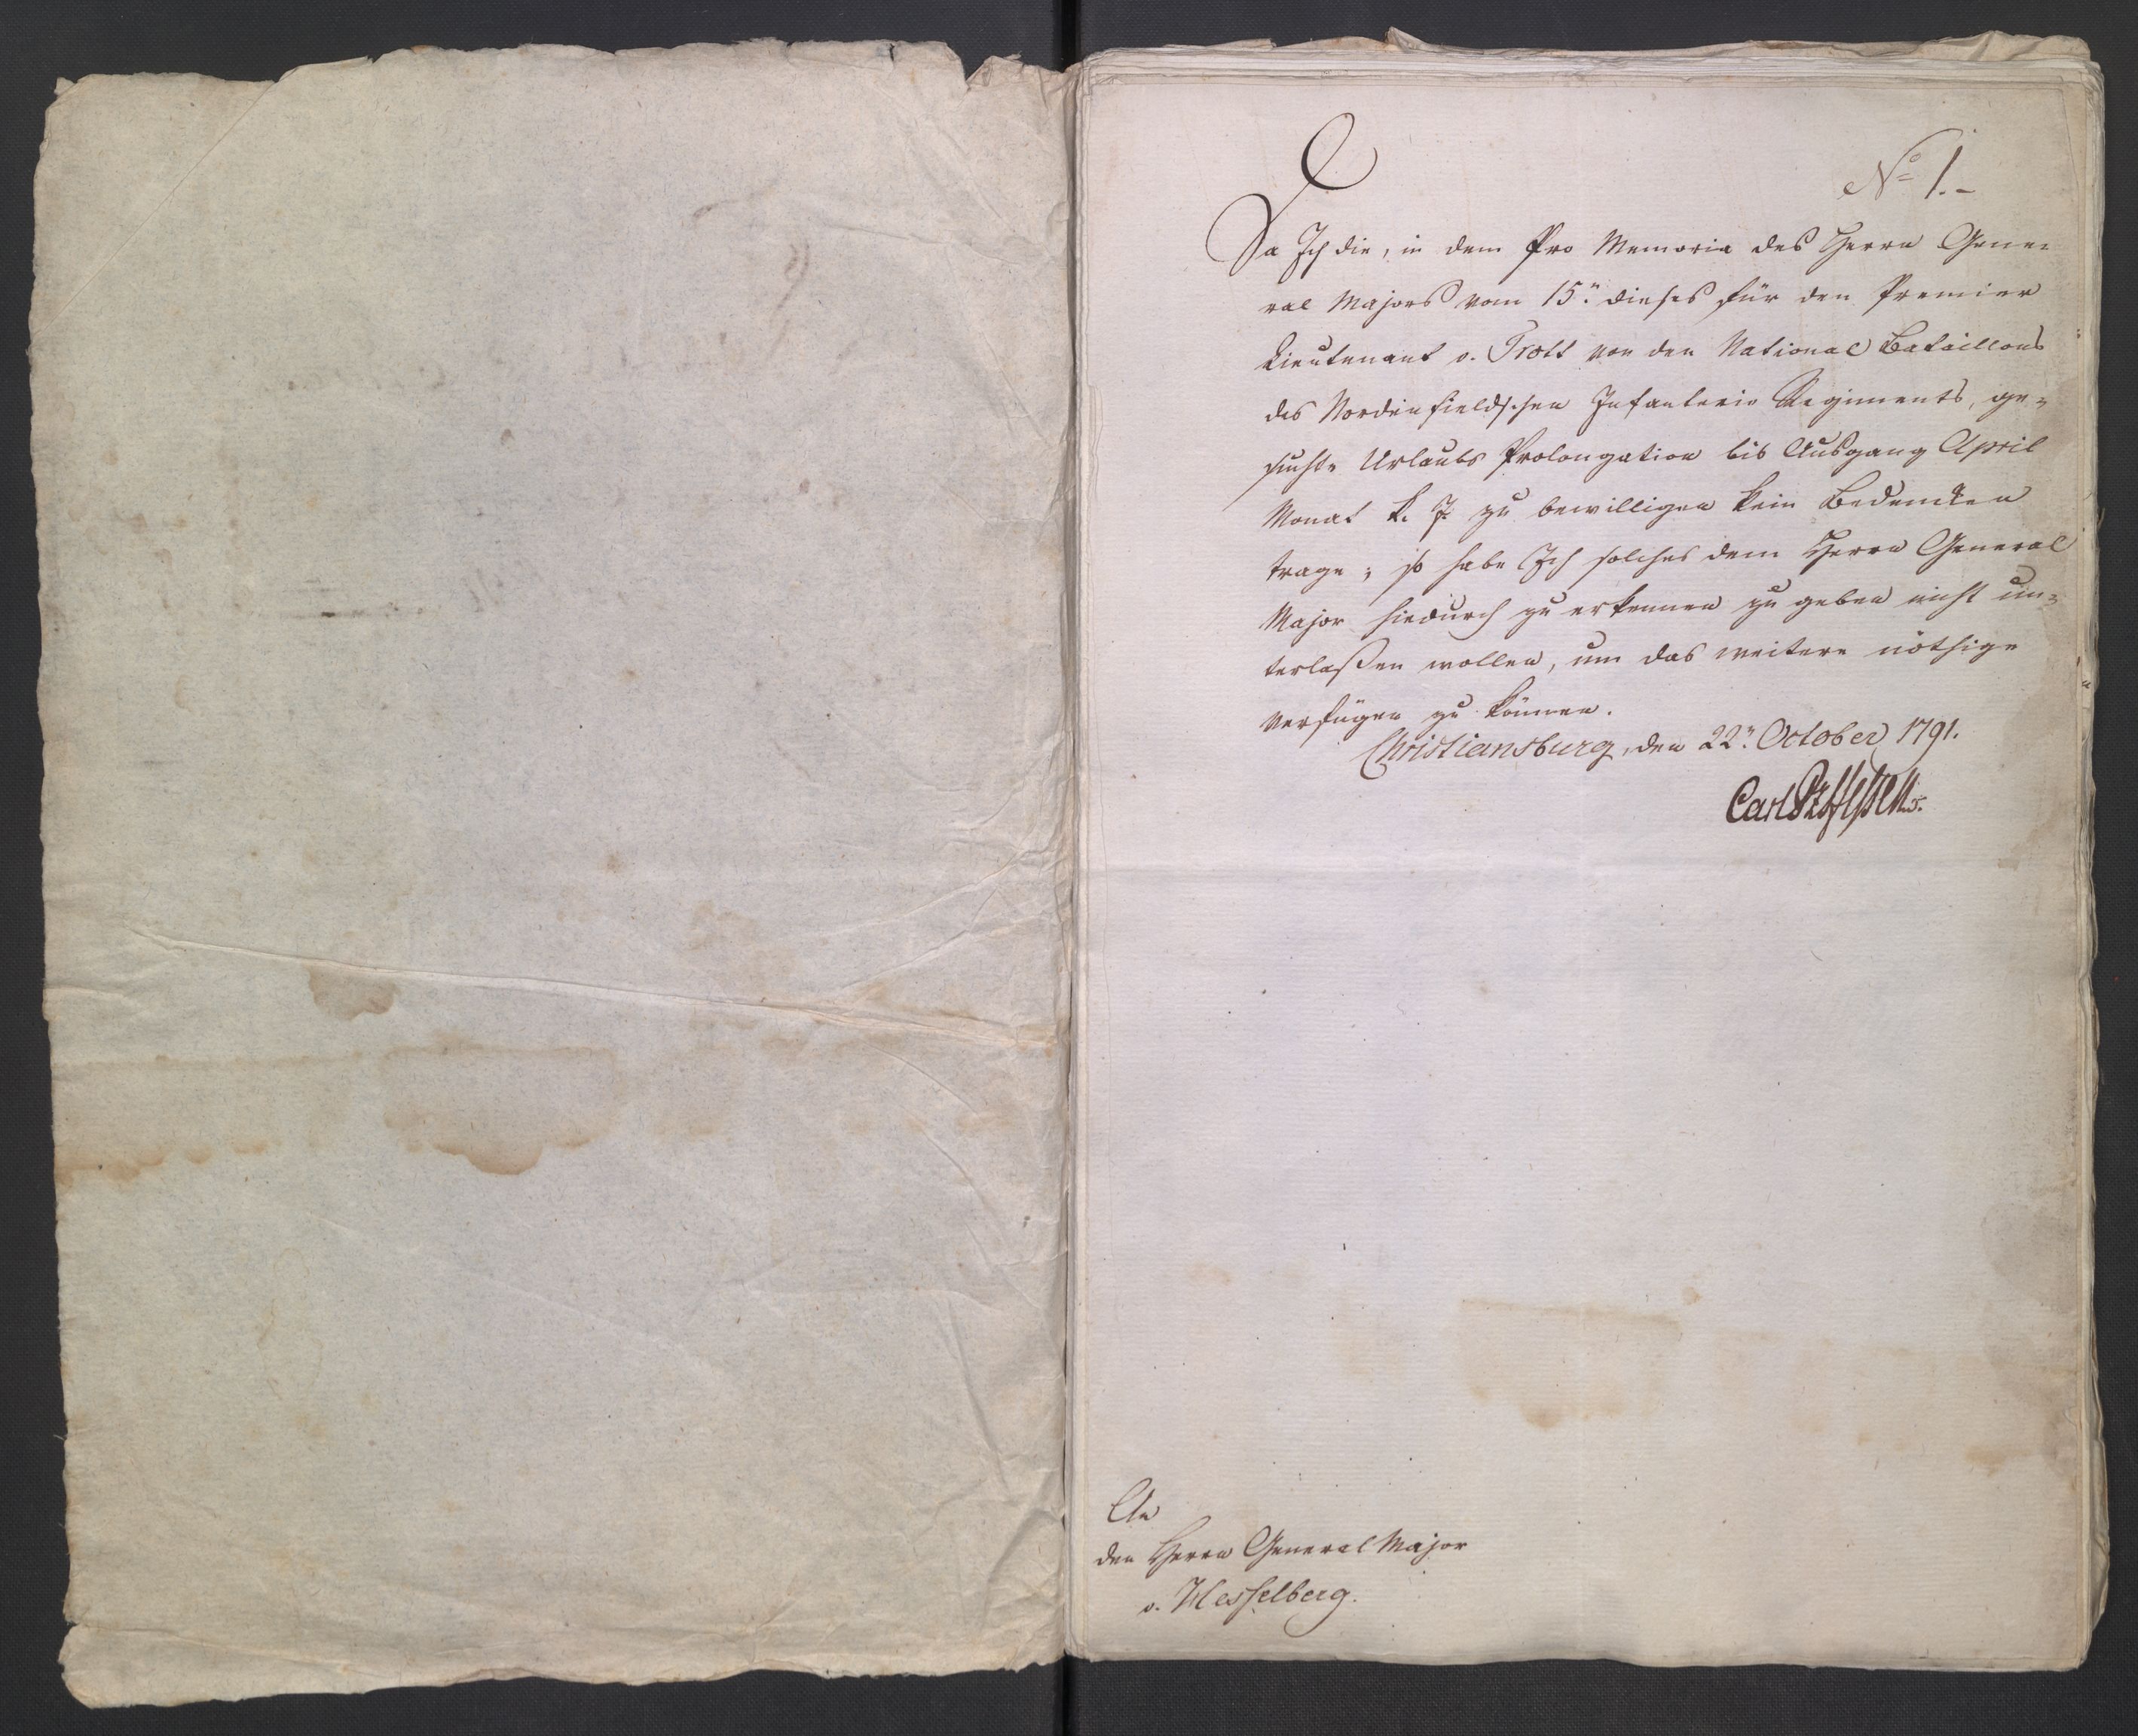 No 1.-
Da Ich die, in dem Pro Memoria des Herrn Gene-
ral Majors vom 15n. dieses für den Premier
Lieutenant v. Trott von den National Bataillons
des Nordenfieldschen Infanterie Regiments, ge-
suchte Urlaubs Prolongation bis Ausgang April
Monat k. J. zu bewilligen kein Bedencken
trage; so habe Ich solches dem Herrn General
Major hiedurch zu erkennen zu geben nicht un-
terlaßen wollen, um das weitere nöthige
verfügen zu können.
Christiansburg, den 22n. October 1791.
Carl Pz Hessen
An
den Herrn General Major
v. Hesselberg.